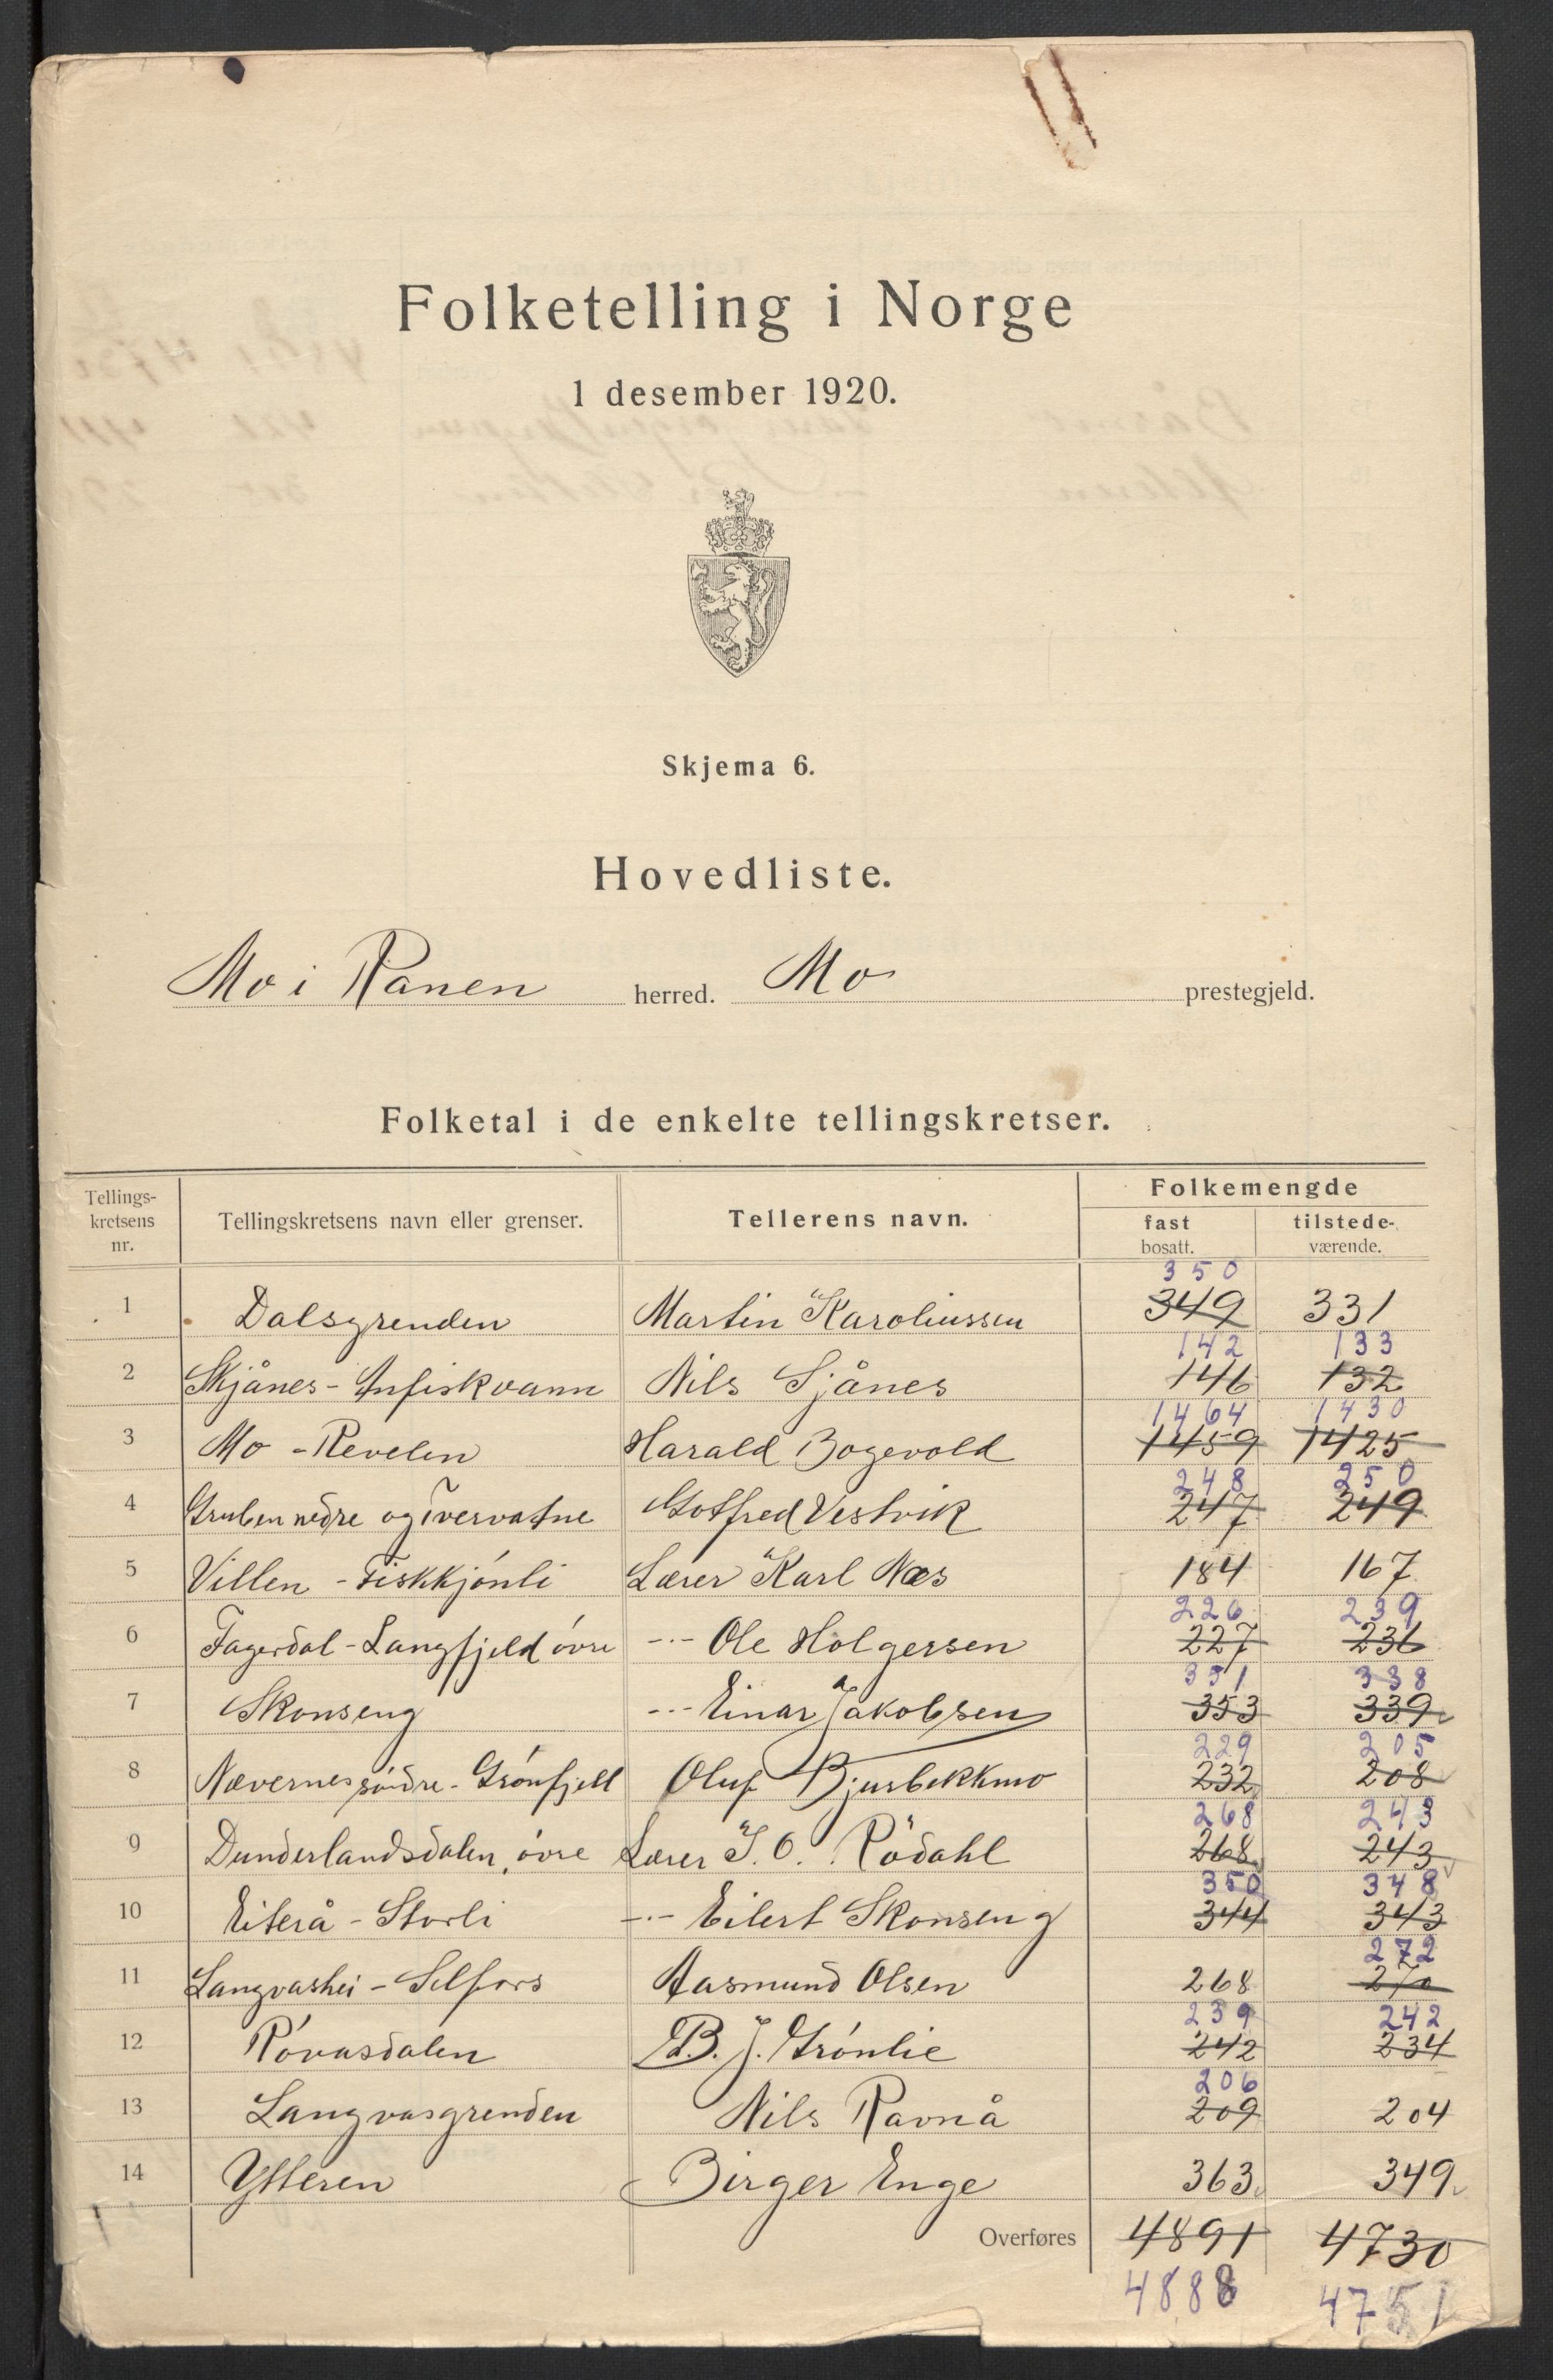 Folketelling i Norge
1 desember 1920.
Skjema 6.
Hovedliste.
Mo i Ranen herred. Mo prestegjeld.
Folketal i de enkelte tellingskretser.
Tellings-kretsens nr. Tellingskretsens navn eller grenser. Tellerens navn. Folkemengde fast bosatt. tilstede-værende.
350
1 Dalsgrenden Martin Karoliussen 349 331
142 133
2 Skjånes - Anfiskvann Nils Sjånes 146 132
1464 1430
3 Mo - Revelen Harald Bogevold 1459 1425
248 250
4 Gruben nedre og Tvervatne Gotfred Vestvik 247 249
5 Villen - Fiskkjónli Lærer Karl Næs 184 167
226 239
6 Fagerdal - Langfjeld óvre -"- Ole Holgersen 227 236
351 338
7 Skonseng -"- Einar Jakobsen 353 339
229 205
8 Nævernes sóndre - Grónfjell Oluf Bjurbekkmo 232 208
268 243
9 Dunderlandsdalen, óvre Lærer I. O. Rödahl 268 243
350 348
10 Eiterå - Storli -"- Eilert Skonseng 344 343
272
11 Langvashei - Selfors Aasmund Olsen 268 270
239 242
12 Róvasdalen B. J. Grónlie 242 234
206
13 Langvasgrenden Nils Ravnå 209 204
14 Ytteren Birger Enge 363 349
Overføres 4891 4730
4888 4751